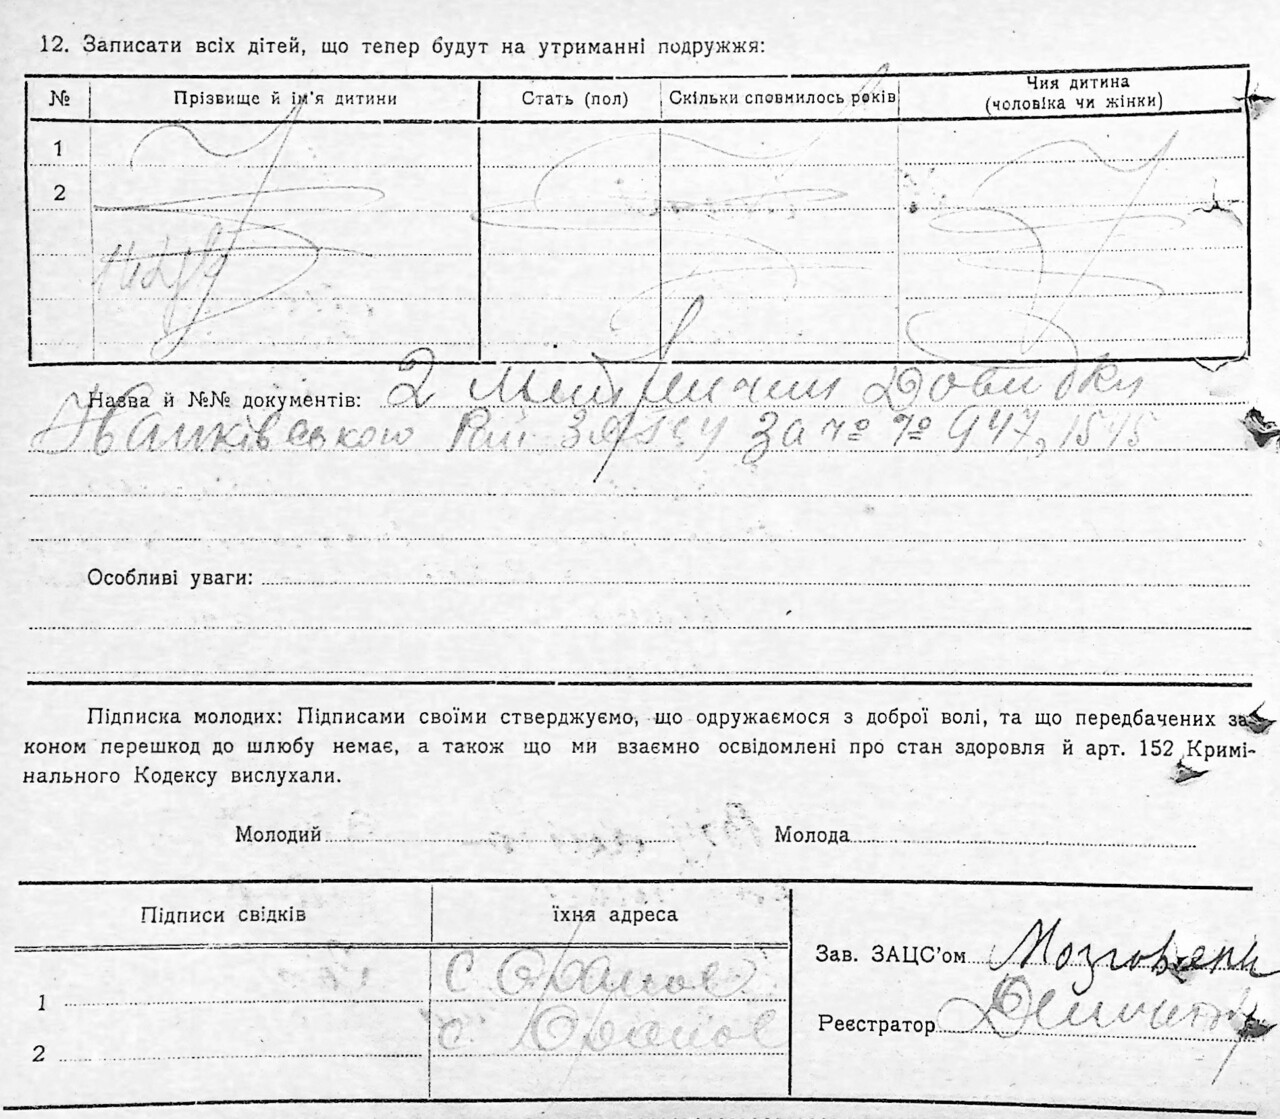 12. Записати всіх дітей, що тепер будут на утриманні подружжя:
№ Прізвище й ім'я дитини Стать (пол) Скільки сповнилось років Чия дитина (чоловіка чи жінки)
1
2
Назва й №№ документів: 2 Метричні Довидки
Іванківського Рай ЗАГСу За №№ 947, 1545
Особливі уваги:
Підписка молодих: Підписами своїми стверджуємо, що одружаємося з доброї волі, та що передбачених за-
коном перешкод до шлюбу немає, а також що ми взаємно освідомлені про стан здоровля й арт. 152 Кримі-
нального Кодексу вислухали.
Молодий Молода
Підписи свідків їхня адреса
Зав. ЗАЦС'ом
1 с.
Реєстратор
2 с.